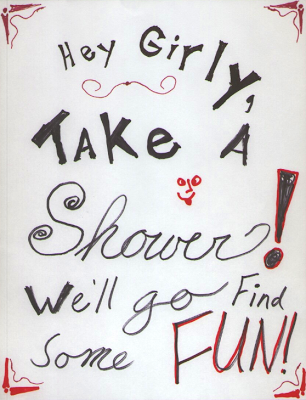 Hey Girly,
TAKE A
Shower!
We'll go Find
some FUN!